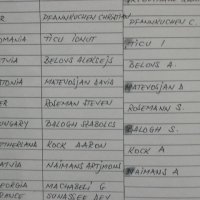 ER PFANNKUCHEN CHRISTIAN PFANNKUCHEN C.
OMANIA TICU IONUT TICU I
TVIA BELOVS ALEKSEJS BELOVS A.
TONIA MATEVOSJAN DAVID MATEVOSJAN D
ER ROSEMAN STEVEN ROSEMANN S.
UNGARY BALOGH SZABOLCS BALOGH S.
ETHERLAND ROCK AARON ROCK A
ATVIA NAIMANS ARTJMOMS NAIMANS A
EORGIA MACHABELI G
RANCE SUNASSEE DEV